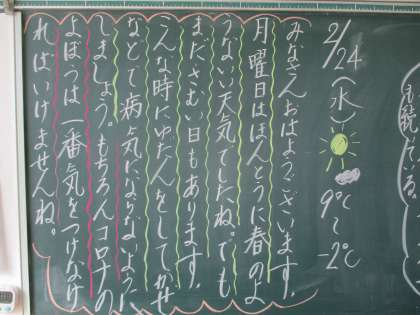 2/24(水)
9℃
〜
-2℃
みなさんおはようございます.
月曜日はほんとうに春のよ
うないい天気でしたね。でも
まださむい日もあります.
こんな時にゆだんをしてかぜ
などで病気にならないように
しましょう。もちろんコロナの
よぼうは一番気をつけなけ
ればいけませんね。